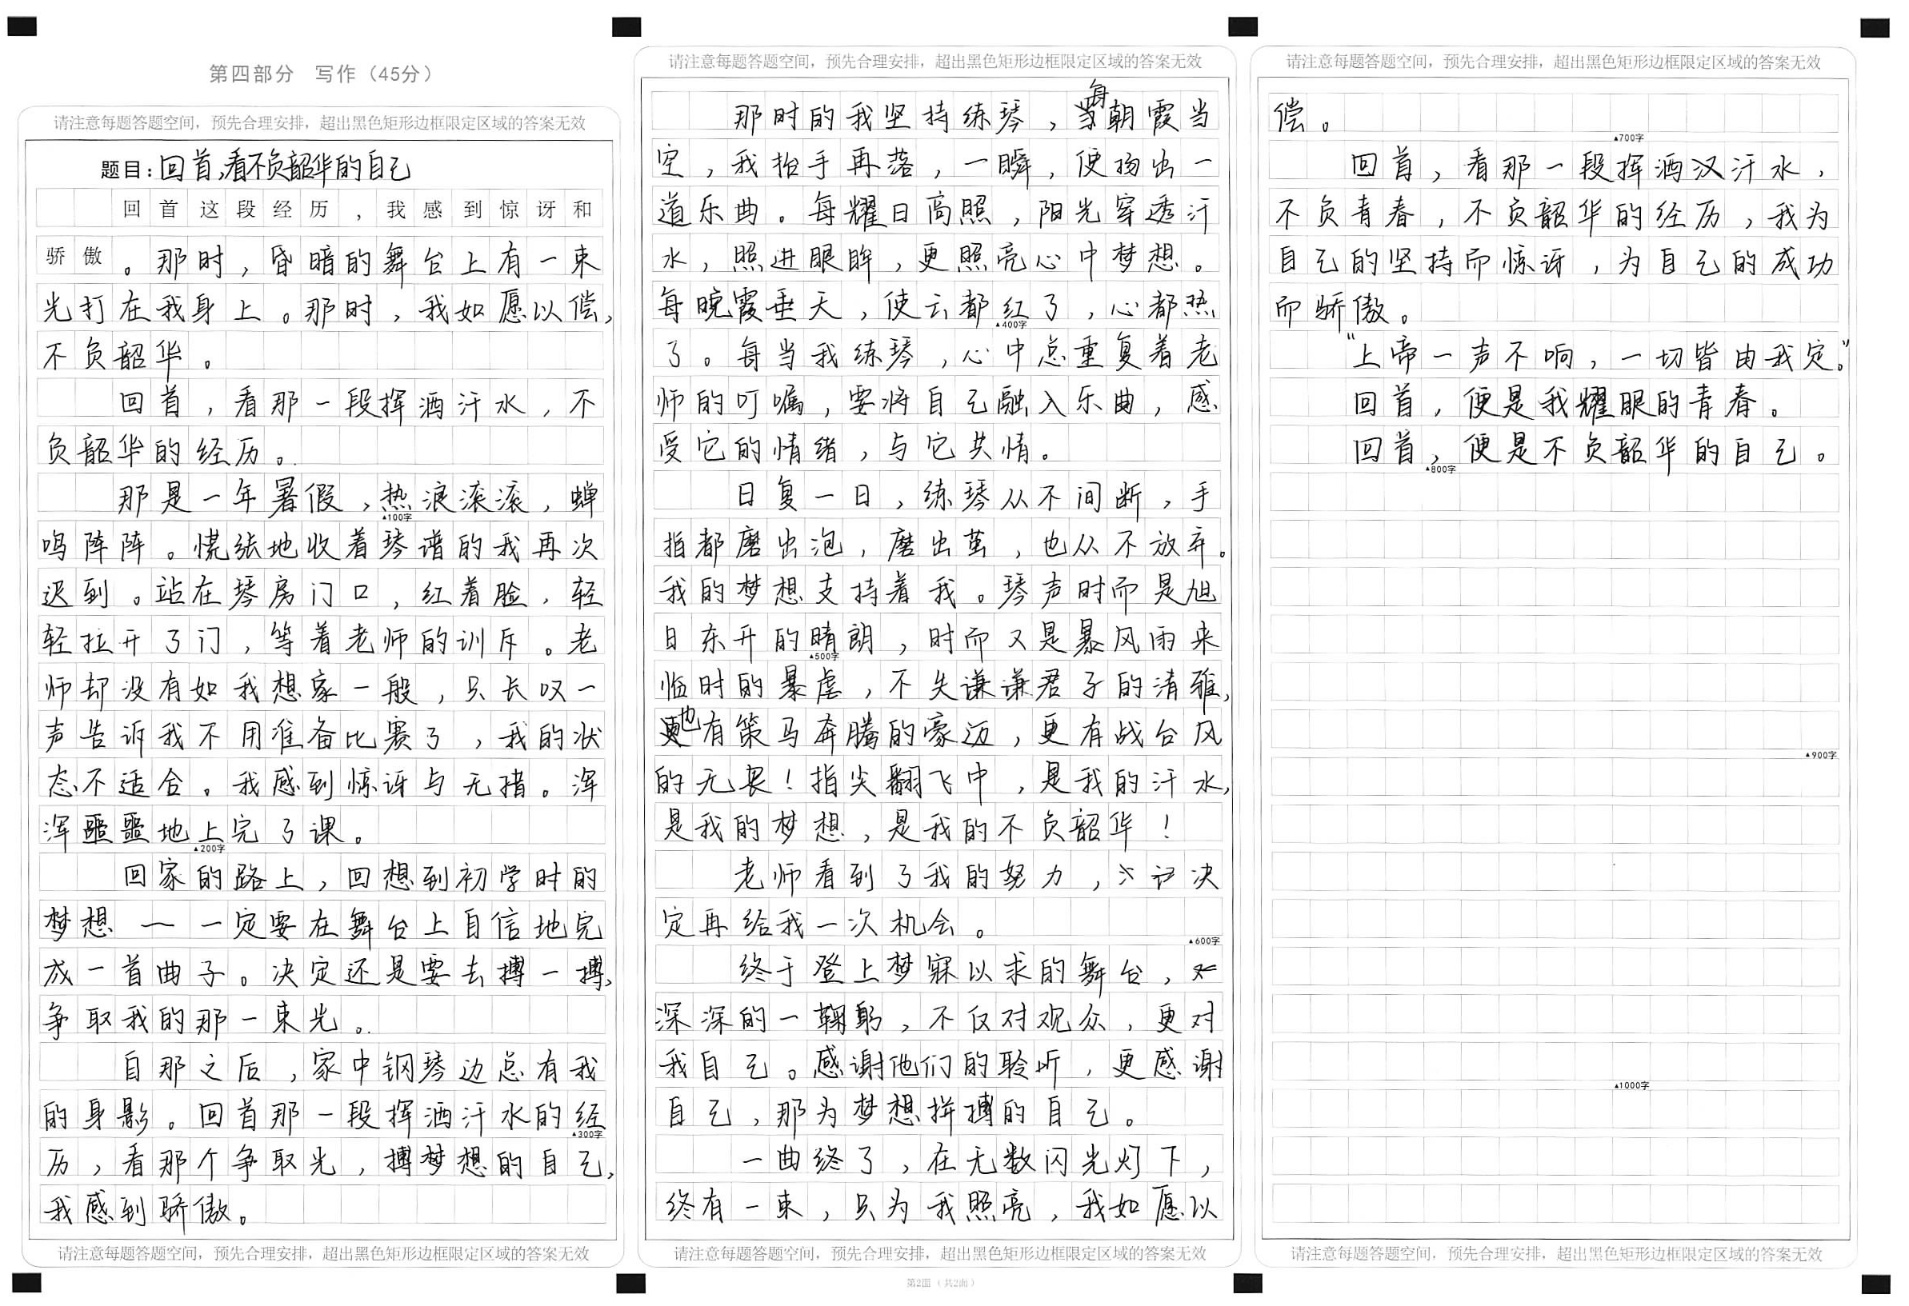 第四部分 写作（45分）
请注意每题答题空间，预先合理安排，超出黑色矩形边框限定区域的答案无效
题目：回首,看不负韶华的自己
回首这段经历，我感到惊讶和
骄傲。那时，昏暗的舞台上有一束
光打在我身上。那时，我如愿以偿，
不负韶华。
回首，看那一段挥洒汗水，不
负韶华的经历。
那是一年暑假，热浪滚滚，蝉
▲100字
鸣阵阵。慌张地收着琴谱的我再次
迟到。站在琴房门口，红着脸，轻
轻拉开了门，等着老师的训斥。老
师却没有如我想象一般，只长叹一
声告诉我不用准备比赛了，我的状
态不适合。我感到惊讶与无措。浑
浑噩噩地上完了课。
▲200字
回家的路上，回想到初学时的
梦想 — 一定要在舞台上自信地完
成一首曲子。决定还是要去搏一搏，
争取我的那一束光。
自那之后，家中钢琴边总有我
的身影。回首那一段挥洒汗水的经
▲300字
历，看那个争取光，搏梦想的自己，
我感到骄傲。
请注意每题答题空间，预先合理安排，超出黑色矩形边框限定区域的答案无效
请注意每题答题空间，预先合理安排，超出黑色矩形边框限定区域的答案无效
那时的我坚持练琴，每朝霞当
空，我抬手再落，一瞬，便扬出一
道乐曲。每耀日高照，阳光穿透汗
水，照进眼眸，更照亮心中梦想。
每晚霞垂天，使云都红了，心都热
▲400字
了。每当我练琴，心中总重复着老
师的叮嘱，要将自己融入乐曲，感
受它的情绪，与它共情。
日复一日，练琴从不间断，手
指都磨出泡，磨出茧，也从不放弃。
我的梦想支持着我。琴声时而是旭
日东升的晴朗，时而又是暴风雨来
▲500字
临时的暴虐，不失谦谦君子的清雅，
也有策马奔腾的豪迈，更有战台风
的无畏！指尖翻飞中，是我的汗水，
是我的梦想，是我的不负韶华！
老师看到了我的努力，决
定再给我一次机会。
▲600字
终于登上梦寐以求的舞台，
深深的一鞠躬，不仅对观众，更对
我自己。感谢他们的聆听，更感谢
自己，那为梦想拼搏的自己。
一曲终了，在无数闪光灯下，
终有一束，只为我照亮，我如愿以
请注意每题答题空间，预先合理安排，超出黑色矩形边框限定区域的答案无效
第2面（共2面）
请注意每题答题空间，预先合理安排，超出黑色矩形边框限定区域的答案无效
偿。
▲700字
回首，看那一段挥洒汉汗水，
不负青春，不负韶华的经历，我为
自己的坚持而惊讶，为自己的成功
而骄傲。
“上帝一声不响，一切皆由我定。”
回首，便是我耀眼的青春。
回首，便是不负韶华的自己。
▲800字
▲900字
▲1000字
请注意每题答题空间，预先合理安排，超出黑色矩形边框限定区域的答案无效